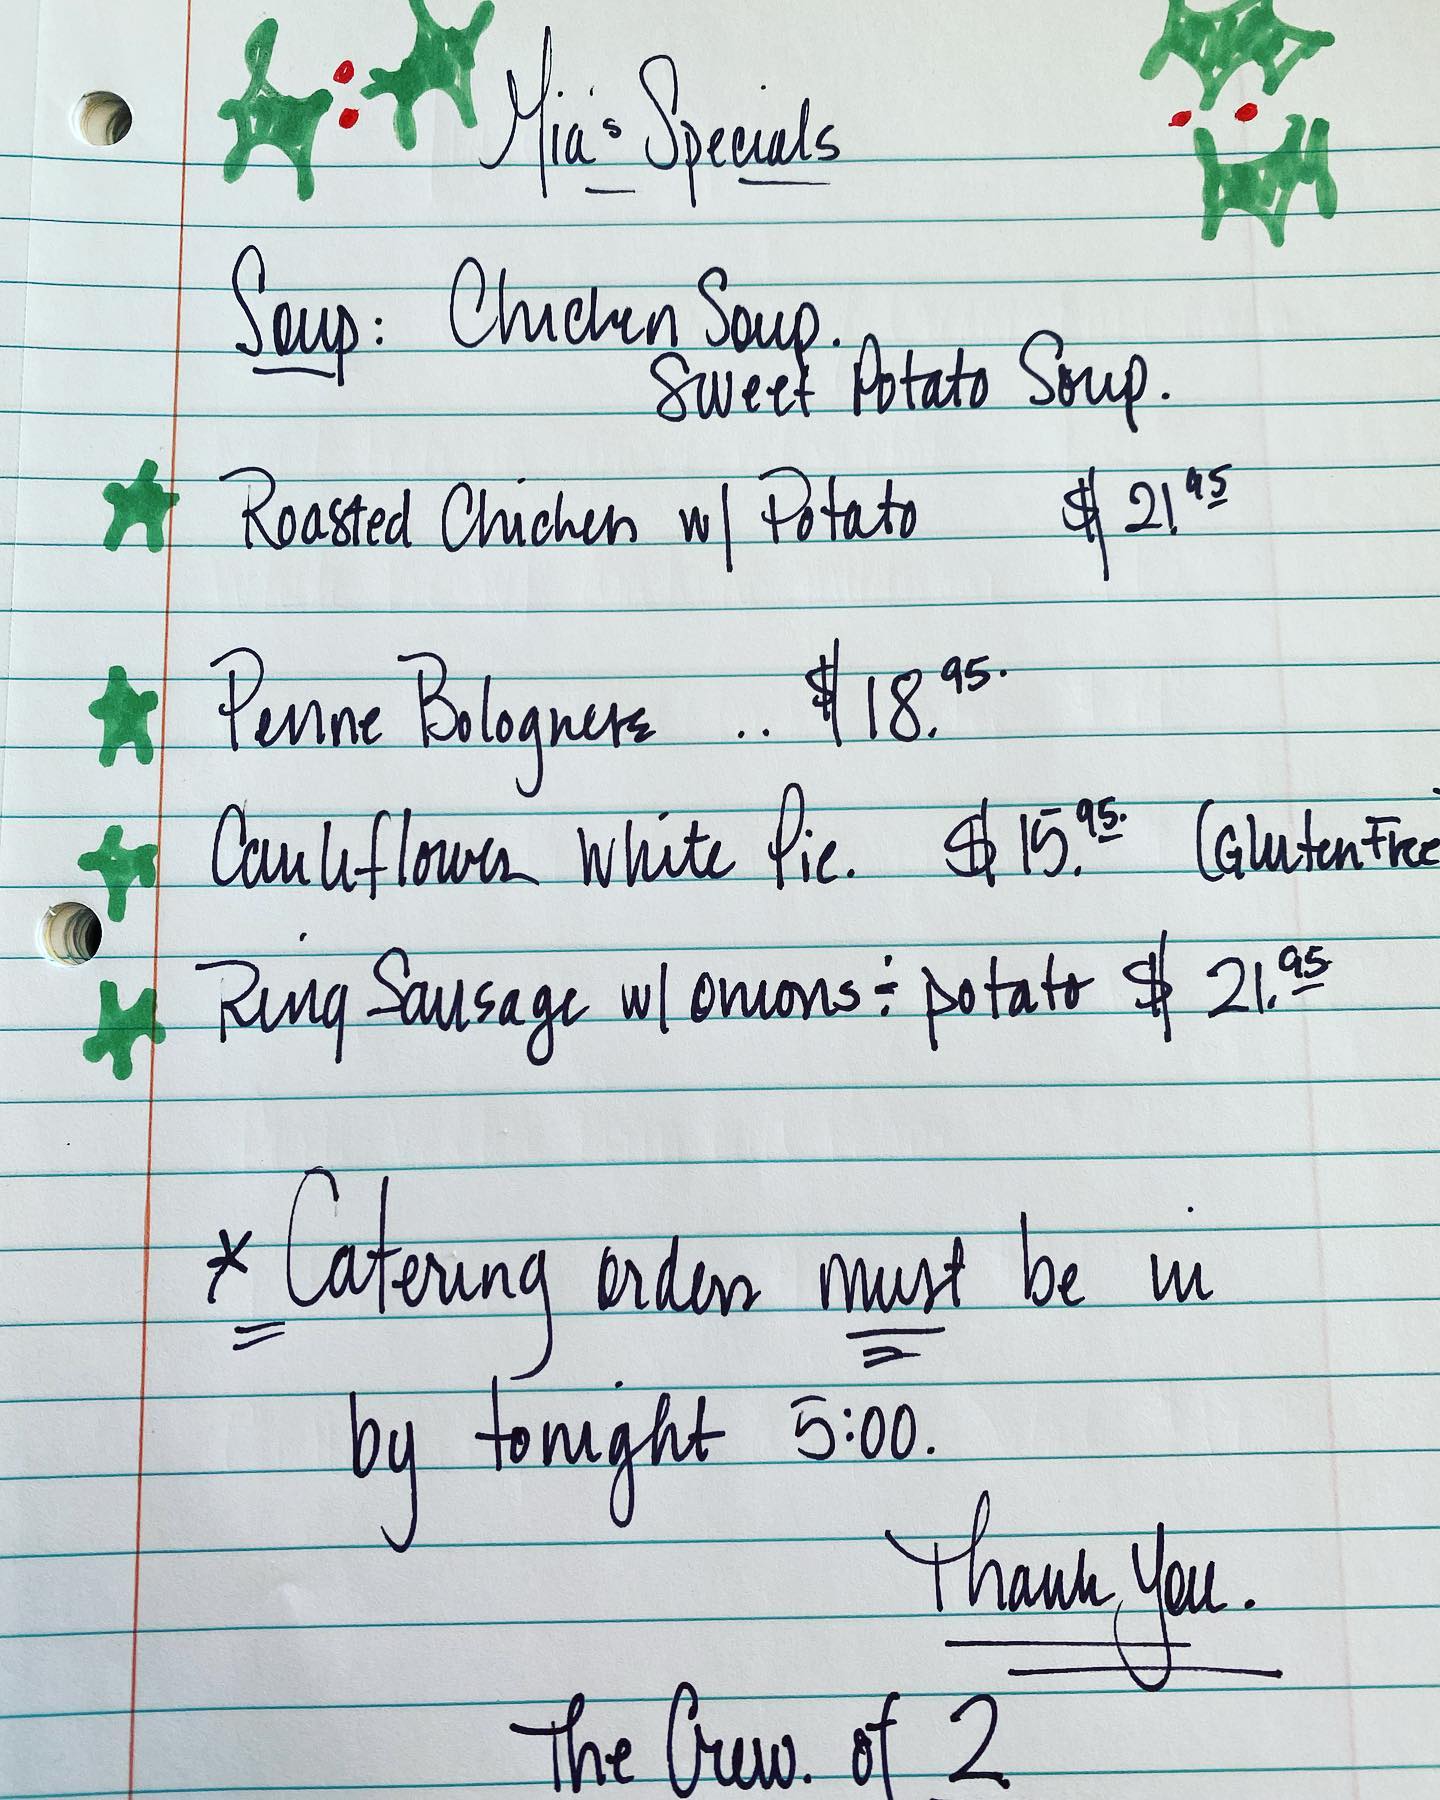 Mia's Specials
Soup: Chicken Soup.
Sweet Potato Soup.
Roasted Chicken w/ Potato $21.95
Penne Bolognese .. $18.95.
Cauliflower White Pie. $15.95. (Gluten Free
Ring Sausage w/ onions ÷ potato $21.95
* Catering orders must be in
by tonight 5:00.
Thank You.
The Crew. of 2